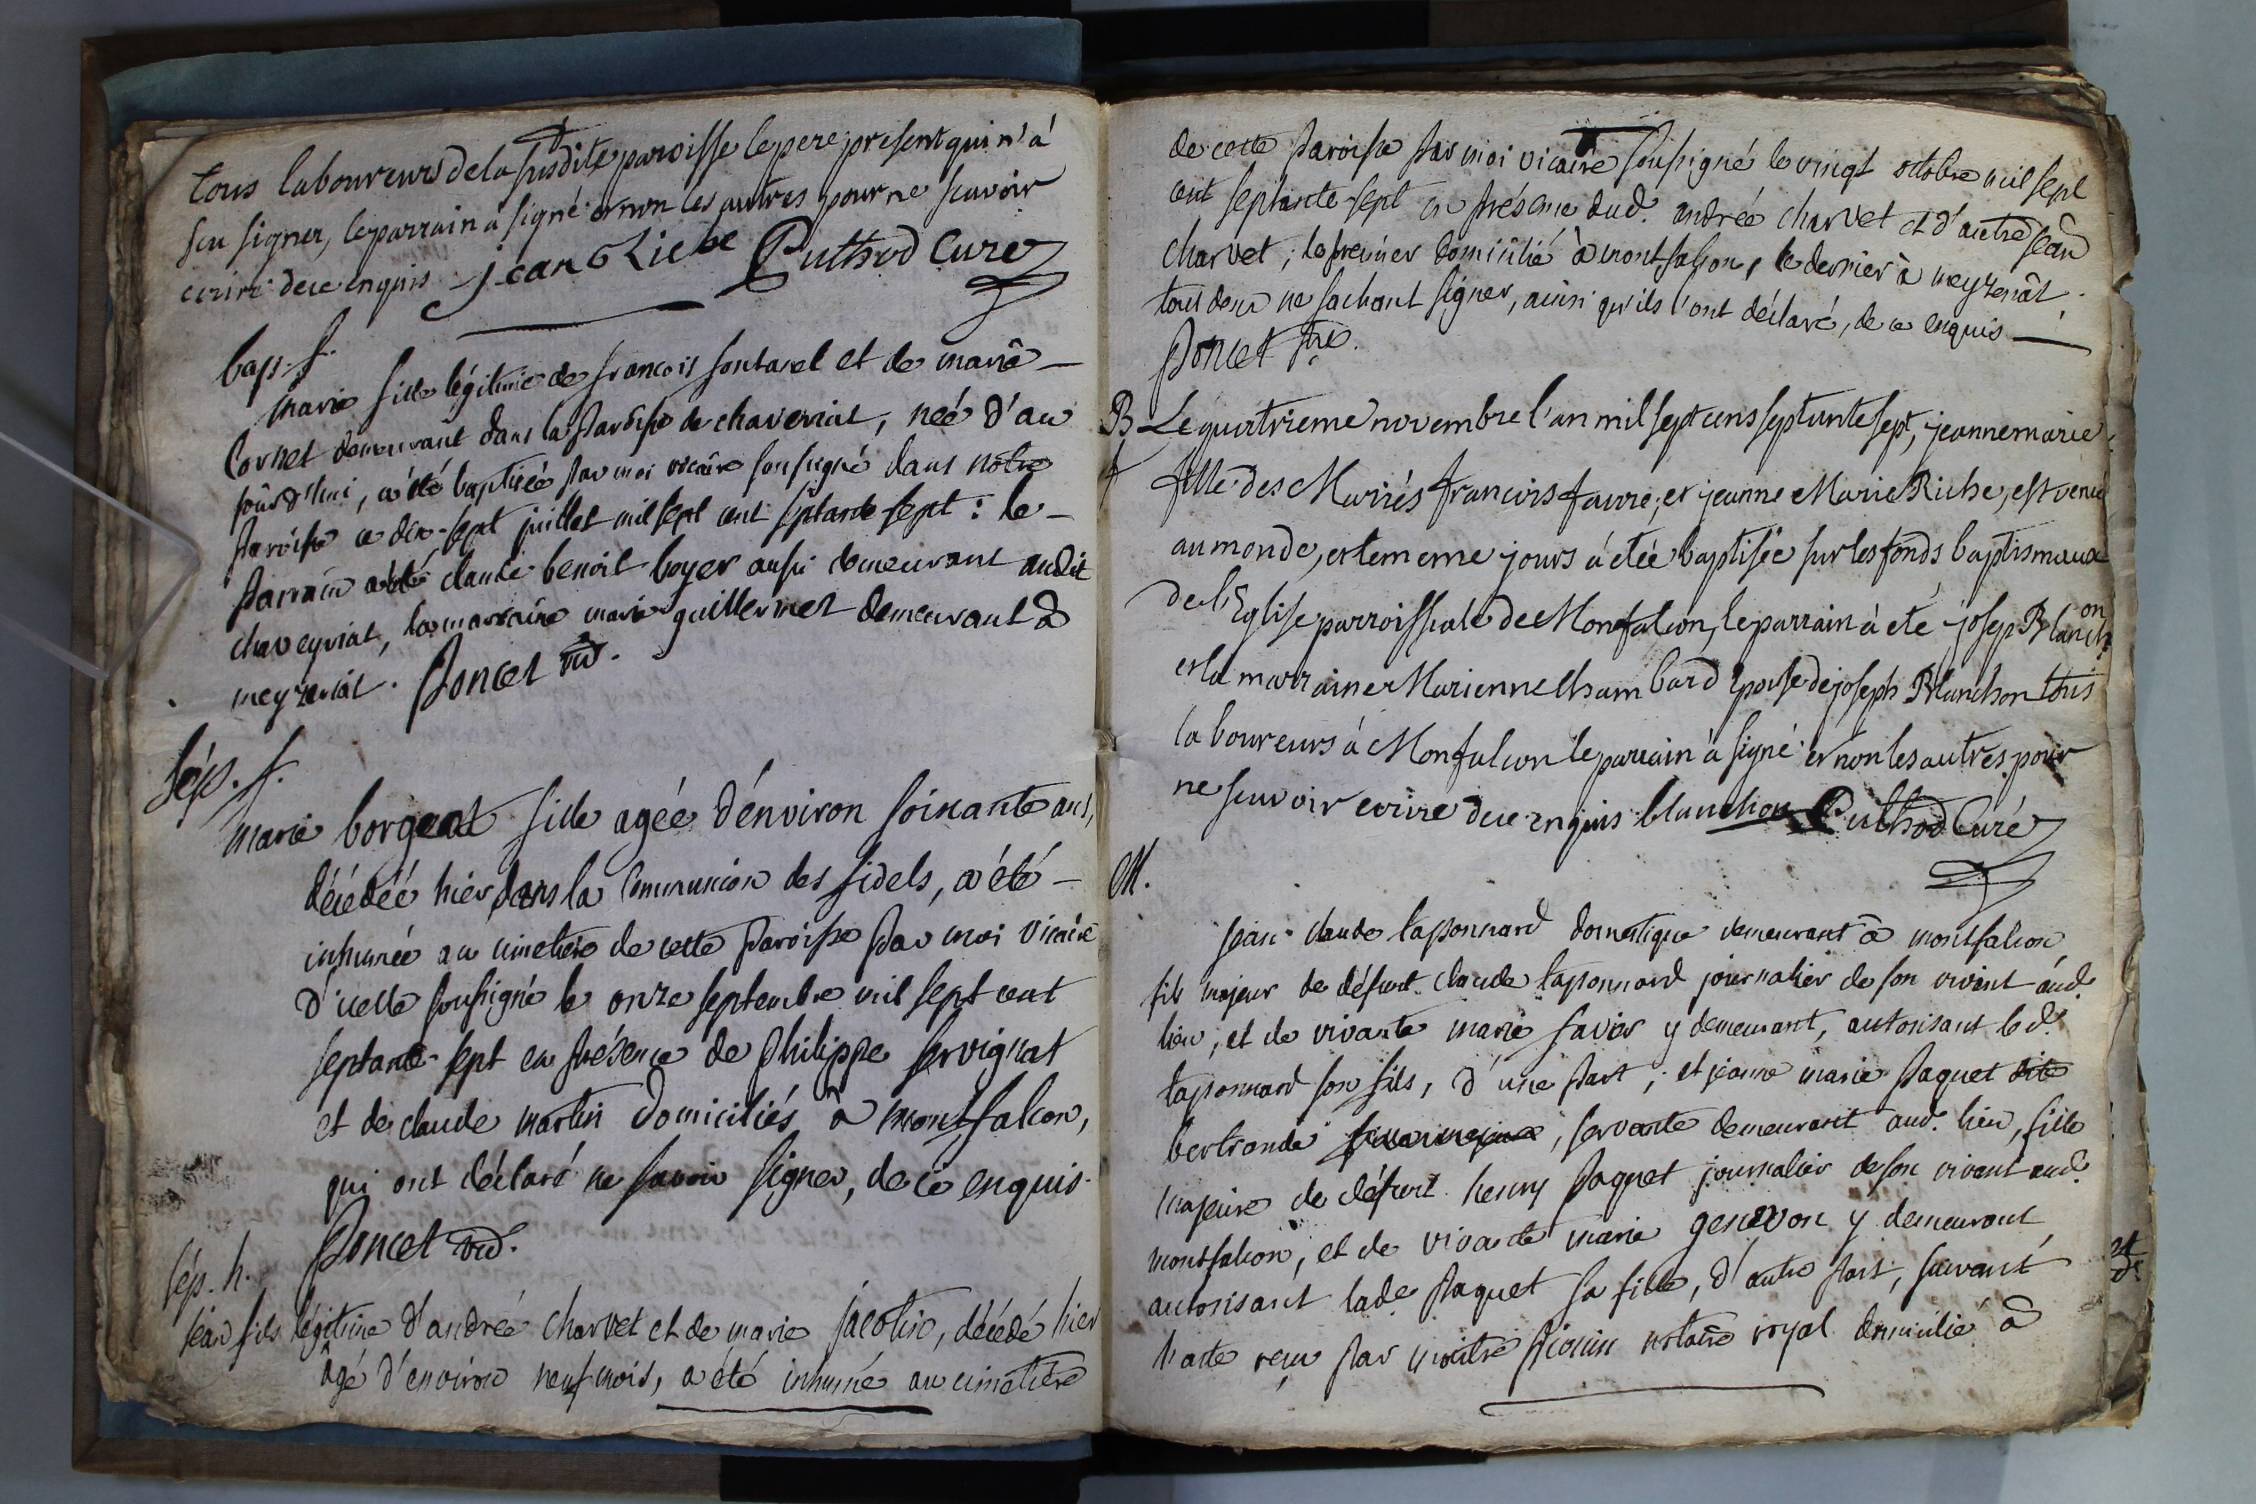 tous laboureurs de la susdite paroisse le pere present qui n'à
scu signer, le parrain à signé et non les autres pour ne scavoir
ecrire de ce enquis Jean Riche Puthod Curé
bap. f.
marie fille légitime de francois fontanel et de marie
Cornet demeurant dans la paroisse de chaveyriat, neé d'au
jourd'hui, a été baptisée par moi vicaire soussigné dans notre
paroisse ce dix-sept juillet mil sept cent septante sept : le
parrain a été claude benoit boyer aussi demeurant audit
chaveyriat, la marraine marie guillermet demeurant à
meyzeriat. Poncet vic.
sép. f.
marie borgeat fille agée d'énviron soixante ans,
décédéé hier dans la Communion des fidels, a été
inhumée au cimetiere de cette paroisse par moi vicaire
d'icelle soussigné le onze septembre mil sept cent
septante-sept en présence de philippe servignat
et de claude martin domiciliés à montfalcon,
qui ont déclaré ne savoir signer, de ce enquis.
Poncet vic.
sép. h.
jean fils légitime d'andreé charvet et de marie jacotin, décédé hier
âgé d'environ neuf mois, a été inhumé au cimetière
de cette paroisse par moi vicaire soussigné le vingt octobre mil sept
cent septante-sept en présence dud. andreé charvet et d'autre jean
charvet ; le premier domicilié à montfalcon, le dernier à meyzeriat
tous deux ne sachant signer, ainsi qu'ils l'ont déclaré, de ce enquis
Poncet ptre.
B Le quatrieme novembre l'an mil sept cens septante sept, jeanne marie
f fille des Mariés francois favre, et jeanne Marie Riche, est venue
au monde, et le meme jours à etée baptisée sur les fonds baptismaux
de l'Eglise parroissiale de Monfalcon, le parrain à eté josep Blanchon
et la marraine Marienne Chambard Epouse de joseph Blanchon tous
laboureurs à Monfalcon le parrain à signé et non les autres pour
ne scavoir ecrire de ce enquis blanchon Puthod Curé
M.
jean claude taponnard domestique demeurant à montfalcon,
fils majeur de défunt claude taponnard journalier de son vivant aud.
lieu, et de vivante marie favier y demeurant, autorisant led.
taponnard son fils, d'une part ; et jeanne marie paquet dite
bertrande fille majeure, servante demeurant aud. lieu, fille
majeure de défunt henry paquet journalier de son vivant aud.
montfalcon, et de vivante marie genevon y demeurant,
autorisant lade paquet sa fille, d'autre part, suivant
l'acte reçu par maitre notaire royal domicilié à